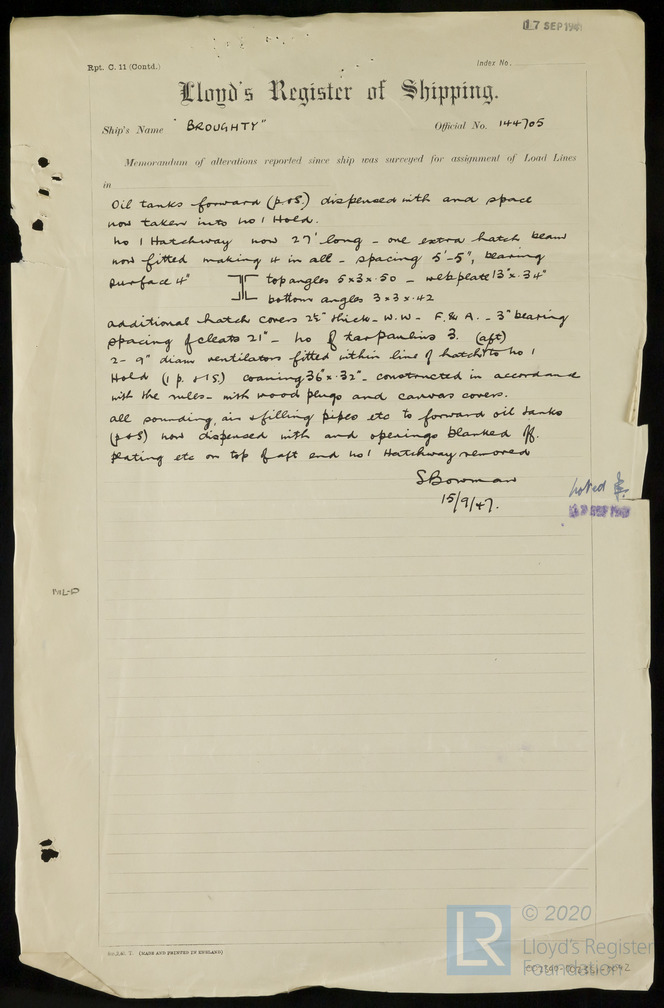 17 SEP 194
Rpt. C. 11 (Contd.)
Index No.
Lloyd's Register of Shipping.
Ship's Name "BROUGHTY"
Official No. 144705
Memorandum of alterations reported since ship was surveyed for assignment of Load Lines
in
Oil tanks forward (p & S.) dispensed with and space
now taken into No 1 Hold.
No 1 Hatchway now 27' long - one extra hatch beam
now fitted making 4 in all - spacing 5'-5", bearing
surface 4" top angles 5x3x.50 - webplate 13"x.34"
bottom angles 3x3x.42
additional hatch covers 2½" thick - W.W - F. & A. - 3" bearing
spacing of cleats 21" - No of tarpaulins 3. (aft)
2 - 9" diam ventilators fitted within line of hatch to No 1
Hold (1 p. & 1 S.) coaming 36"x.32" - constructed in accordance
with the rules - with wood plugs and canvas covers.
all sounding, air & filling pipes etc to forward oil tanks
(p & S) now dispensed with and openings blanked off.
plating etc on top of aft end No 1 Hatchway removed
SBowman
15/9/47.
noted
SEP 194
(MADE AND PRINTED IN ENGLAND)
LR
© 2020
Lloyd's Register
Foundation